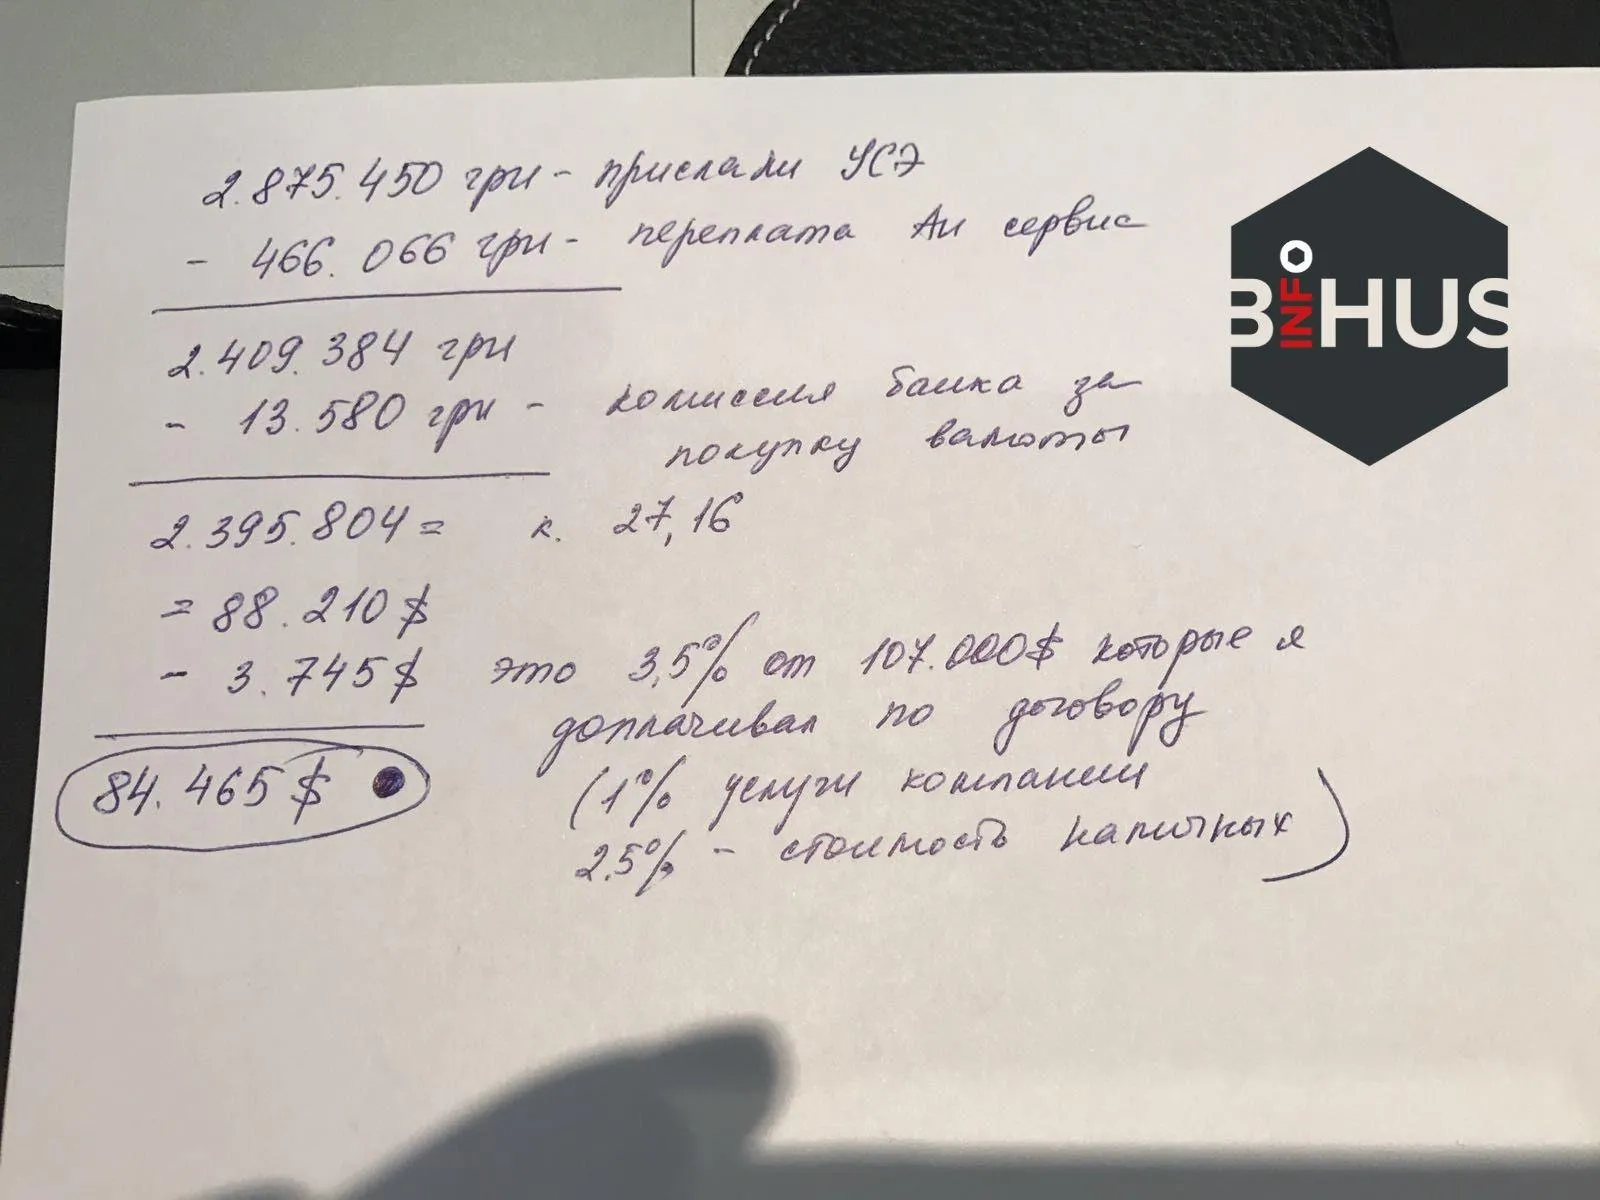 2.875.450 грн - прислали УСЭ
- 466.066 грн - переплата Ан сервис
2.409.384 грн
- 13.580 грн - комиссия банка за
покупку валюты
2.395.804 = к. 27,16
= 88.210 $
- 3.745 $ это 3,5% от 107.000$ которые я
доплачивал по договору
84.465 $
(1% услуги компании
2.5% - стоимость наличных)
BIHUS
INFO